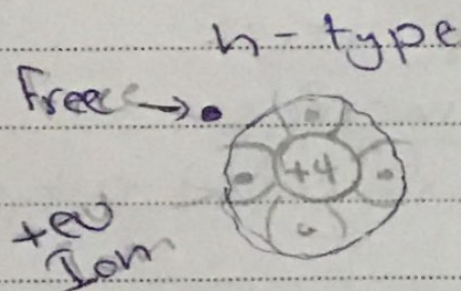 n-type
Free e →
+4
+ev
Ion